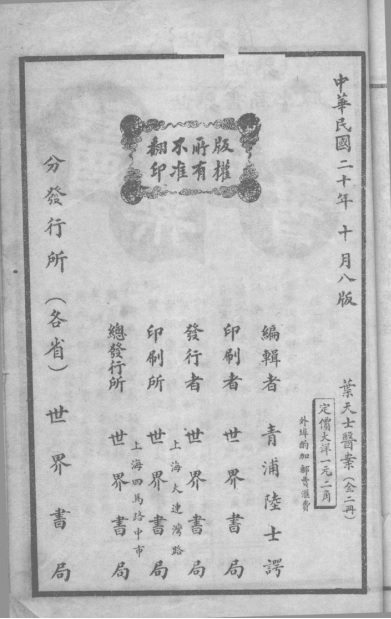 中華民國二十年十月八版
葉天士醫案（全二冊）
定價大洋一元二角
外埠酌加郵費滙費
版權
所有
不准
翻印
編輯者 青浦陸士諤
印刷者 世界書局
發行者 世界書局
上海大連灣路
印刷所 世界書局
上海四馬路中市
總發行所 世界書局
分發行所（各省）世界書局